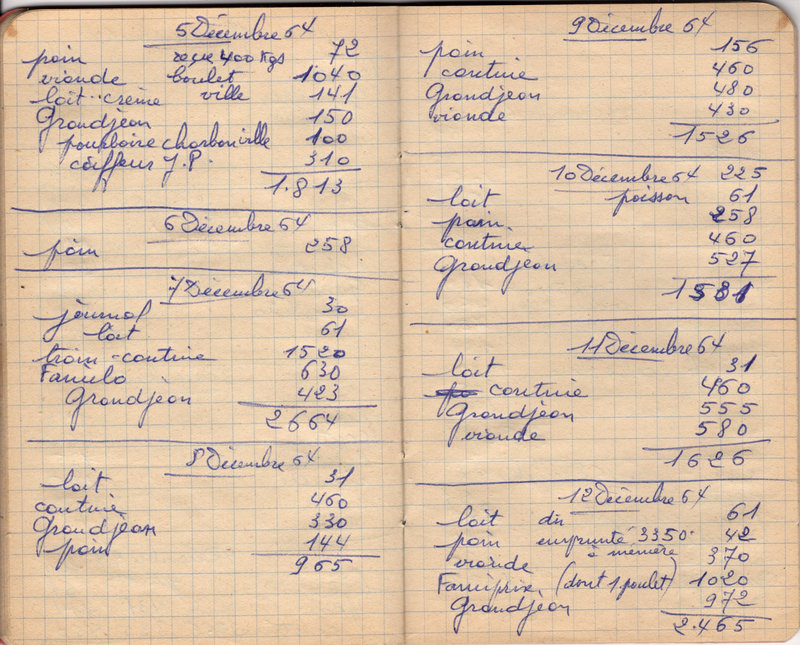 5 Décembre 64
pain reçu 400 kgs 72
viande boulet 1040
lait-crème ville 141
Grandjean 150
pourboire charbonville 100
coiffeur J.P. 310
1.813
6 Décembre 64
pain 258
7 Décembre 64
journal 30
lait 61
train-cantine 1520
Familo 630
Grandjean 423
2664
8 Décembre 64
lait 31
cantine 460
Grandjean 330
pain 144
965
9 Décembre 64
pain 156
cantine 460
Grandjean 480
viande 430
1526
10 Décembre 64 225
lait poisson 61
pain 258
cantine 460
Grandjean 527
1531
11 Décembre 64
lait 31
cantine 460
Grandjean 555
viande 580
1626
12 Décembre 64
lait dû 61
pain emprunté 3350 42
viande à mémère 370
Famiprix (dont 1 poulet) 1020
Grandjean 972
2.465